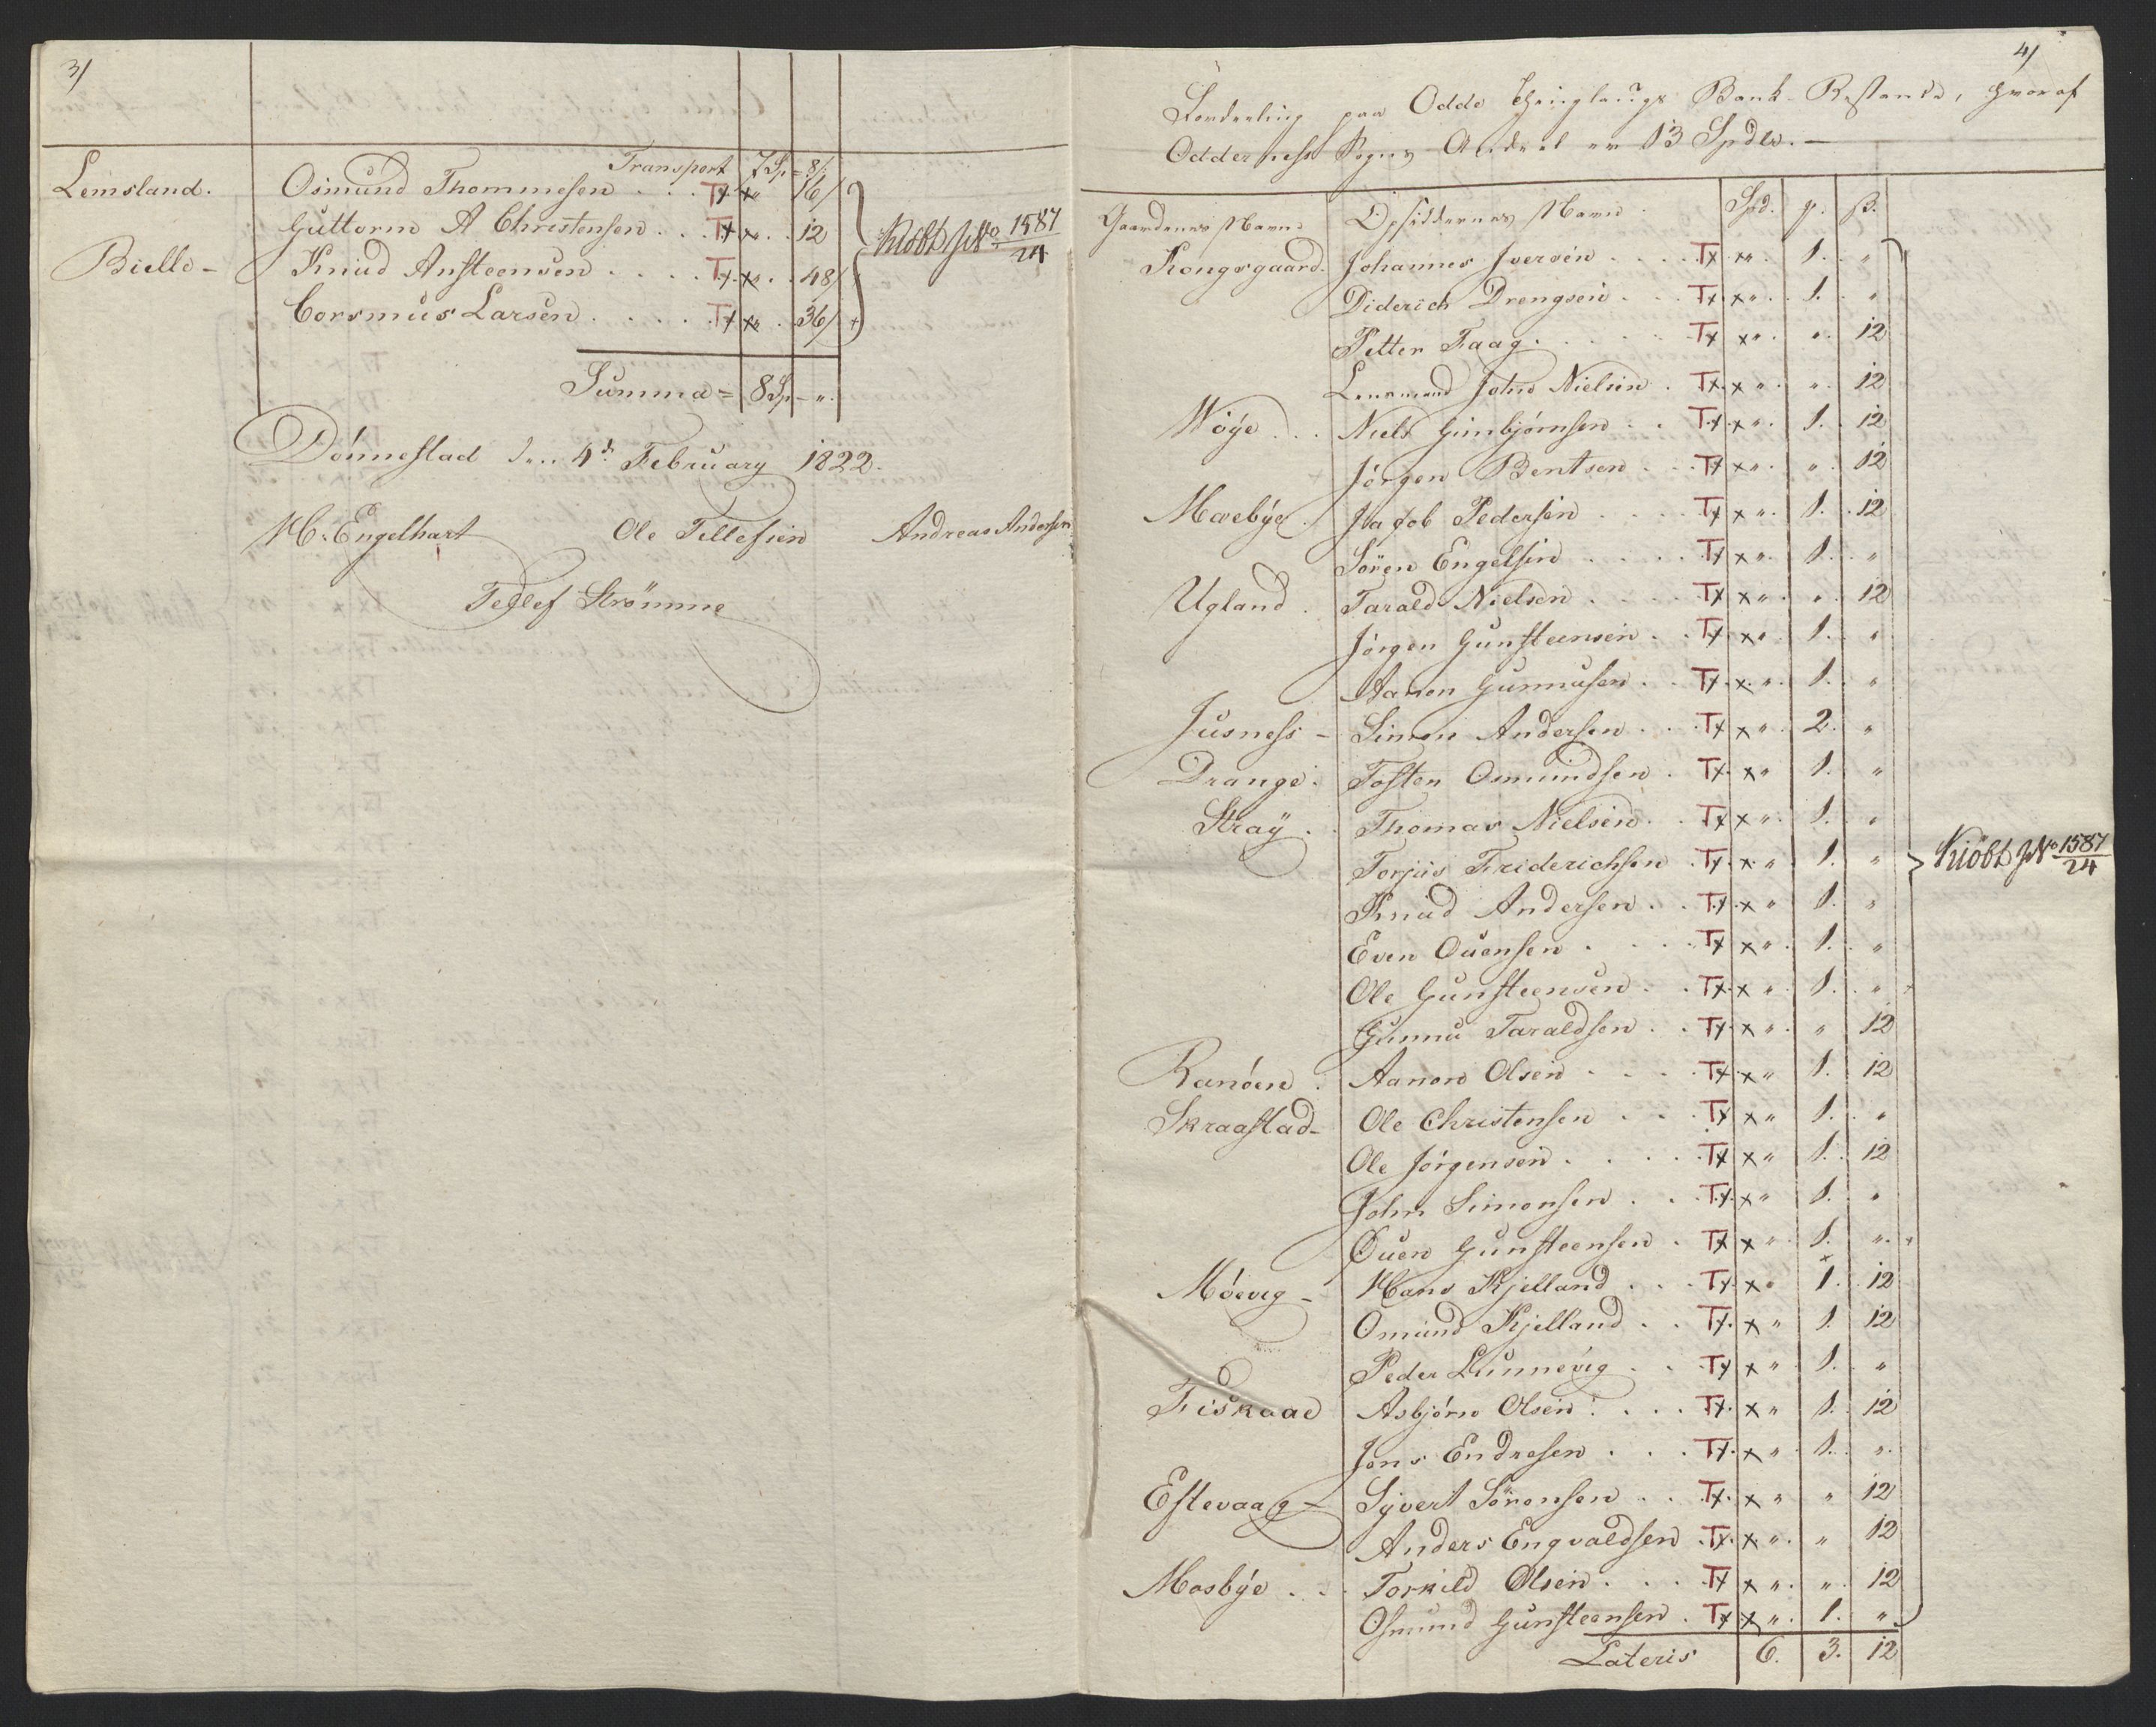 3/
Transport 7 Sp = 8/:
Lemsland. Osmund Thommesen . . Tx x " 16/
Guttorm A Christensen . . . Tx x " . . 12
Kiöbt JNo 1587/24
Bielle - Knud Ansteensen . . . . Tx x . . 48/
Corsmus Larsen . . . . . Tx x " . 36/ +
Summa = 8 Sp - ".
Dönnestad den 4de February 1822.
H. Engelhart Ole Tellefsen Andreas Andersen
Tellef Strömme
4/
Fordeling paa Odde Thinglaugs Bank-Restance, hvoraf
Odderness Sogns Andeel er 13 Spdlr. —
Gaardenes Navne Opsiddernes Navne Spd. ₰. ß.
Kongsgaard. Johannes Iversen . . . . Tx x ". 1. "
Diderich Drengsen . . . Tx x ". . 1. "
Petter Faag . . . . . . Tx x ". ". 12
Lensmand John Nielsen . Tx. x ". ". 12
Wöye . . . Niels Gunbjørnsen . . Tx. x ". 1. 12
Jörgen Bentsen . . . Tx x ". ". 12
Moebÿe. Jacob Pedersen . . . . Tx x ". 1. . 12
Sören Engelsen . . . . . Tx x ". 1. . "
Ugland . Tarald Nielsen . . . . Tx x ". ". 12
Jörgen Gunsteensen . . Tx. x ". 1. "
Aanon Gunnusen . . Tx. x. ". 1. . "
Jusness - Simon Andersen . . . Tx x ". 2. "
Drange. Tosten Osmundsen . Tx. x " 1. "
Straÿ . . Thomas Nielsen . . Tx x ". 1. . "
Torjus Friderichsen . Tx. x. " 1. "
Kiöbt JNo 1587/24
Knud Andersen . . Tx. x " 1. "
Even Ouensen . . . . Tx x ". 1. . "
Ole Gunsteensen . . Tx. x ". 1. . "
Gunnu Taraldsen . . Tx. x ". " 12
Ranöen . Aanon Olsen . . . . Tx. x " 1. 12
Skraastad - Ole Christensen . . . Tx x " 1. . "
Ole Jörgensen . . . . . Tx x " 1. 12
John Simonsen . . . Tx. x " 1. . "
Ouen Gunsteensen . Tx x ". 1. ".
Möevig - Hans Kjelland . . . Tx. x " 1. . 12
Omund Kjelland . . Tx. x " 1. 12
Peder Lunnevig . . . Tx x ". 1. . "
Fiskaae Asbjörn Olsen . . . . Tx. x " 1. . 12
Jens Endresen . . . Tx. x ". 1. . ".
Eftevaag - Syvert Sörensen . . . Tx. x " " 12
Anders Engvaldsen . Tx. x ". " 12
Mosbÿe . . . Torkild Olsen . . . . Tx x ". ". 12
Osmund Gunsteensen . Tx x ". 1. ".
Lateris 6. 3. 12